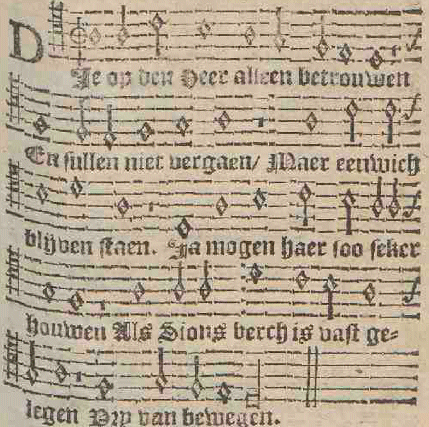 DJe op den Heer alleen betrouwen
En sullen niet vergaen/ Maer eeuwich
blijven staen. Ja mogen haer soo seker
houwen Als Sions berch is vast ge-
legen Vry van bewegen.